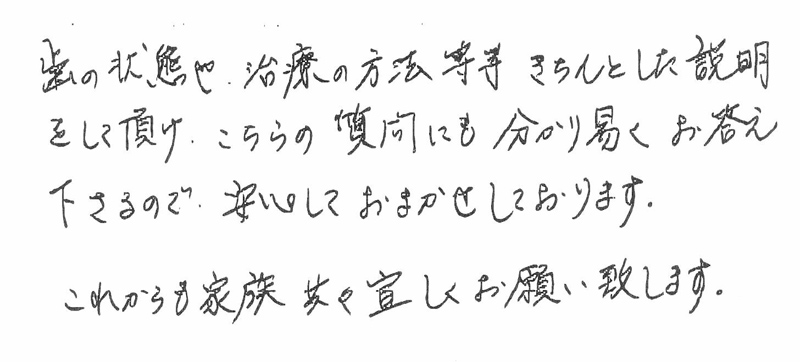 歯の状態や、治療の方法等等 きちんとした説明
をして頂け、こちらの質問にも 分かり易く お答え
下さるので、安心して おまかせしております。
これからも家族 共々 宜しく お願い致します。